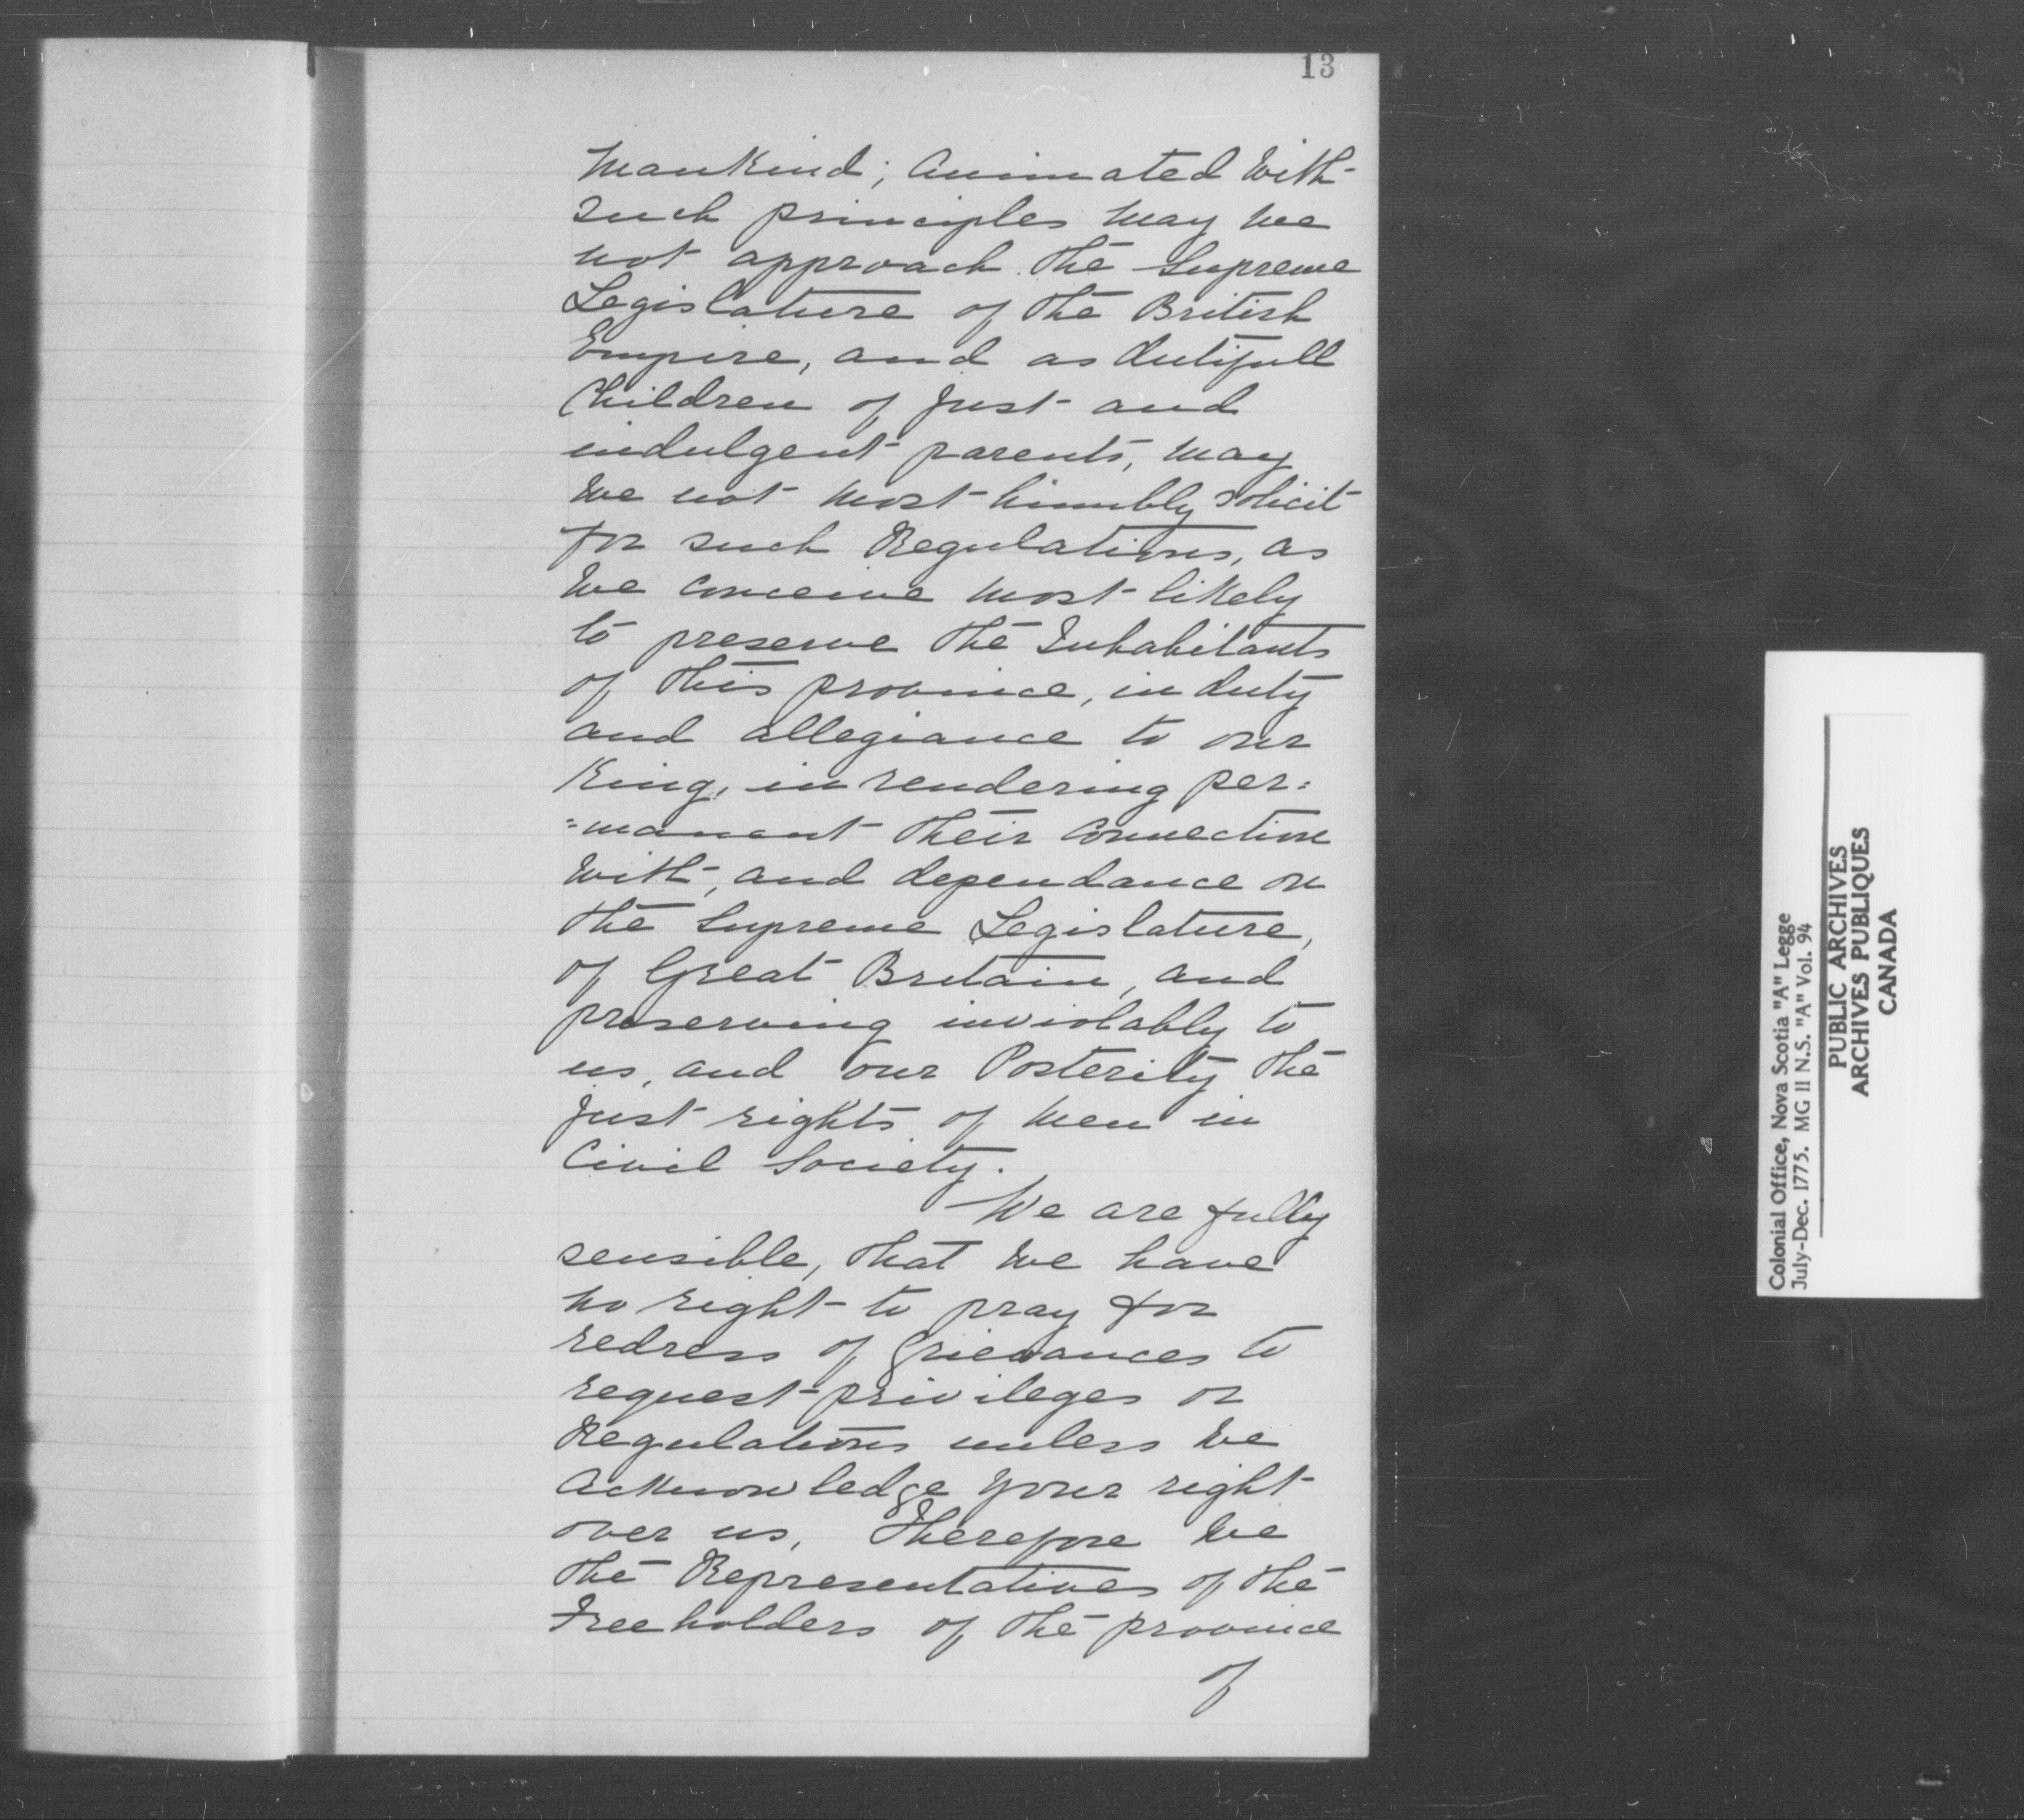 13
Mankind; animated with
such principles may we
not approach the Supreme
Legislature of the British
Empire, and as dutifull
Children of just and
indulgent parents, may
we not most humbly solicit
for such Regulations, as
we conceive most likely
to preserve the Inhabitants
of this province, in duty
and allegiance to our
King, in rendering per:
=manant their connection
with, and dependance on
the Supreme Legislature,
of Great Britain, and
preserving inviolably to
us, and our Posterity the
just rights of men in
Civil Society.
We are fully
sensible, that we have
no right to pray for
redress of Grievances to
request privileges or
Regulations unless we
acknowledge your right
over us, Therefore we
the Representatives of the
Freeholders of the province
of
Colonial Office, Nova Scotia "A" Legge
July-Dec. 1775. MG 11 N.S. "A" Vol. 94
PUBLIC ARCHIVES
ARCHIVES PUBLIQUES
CANADA